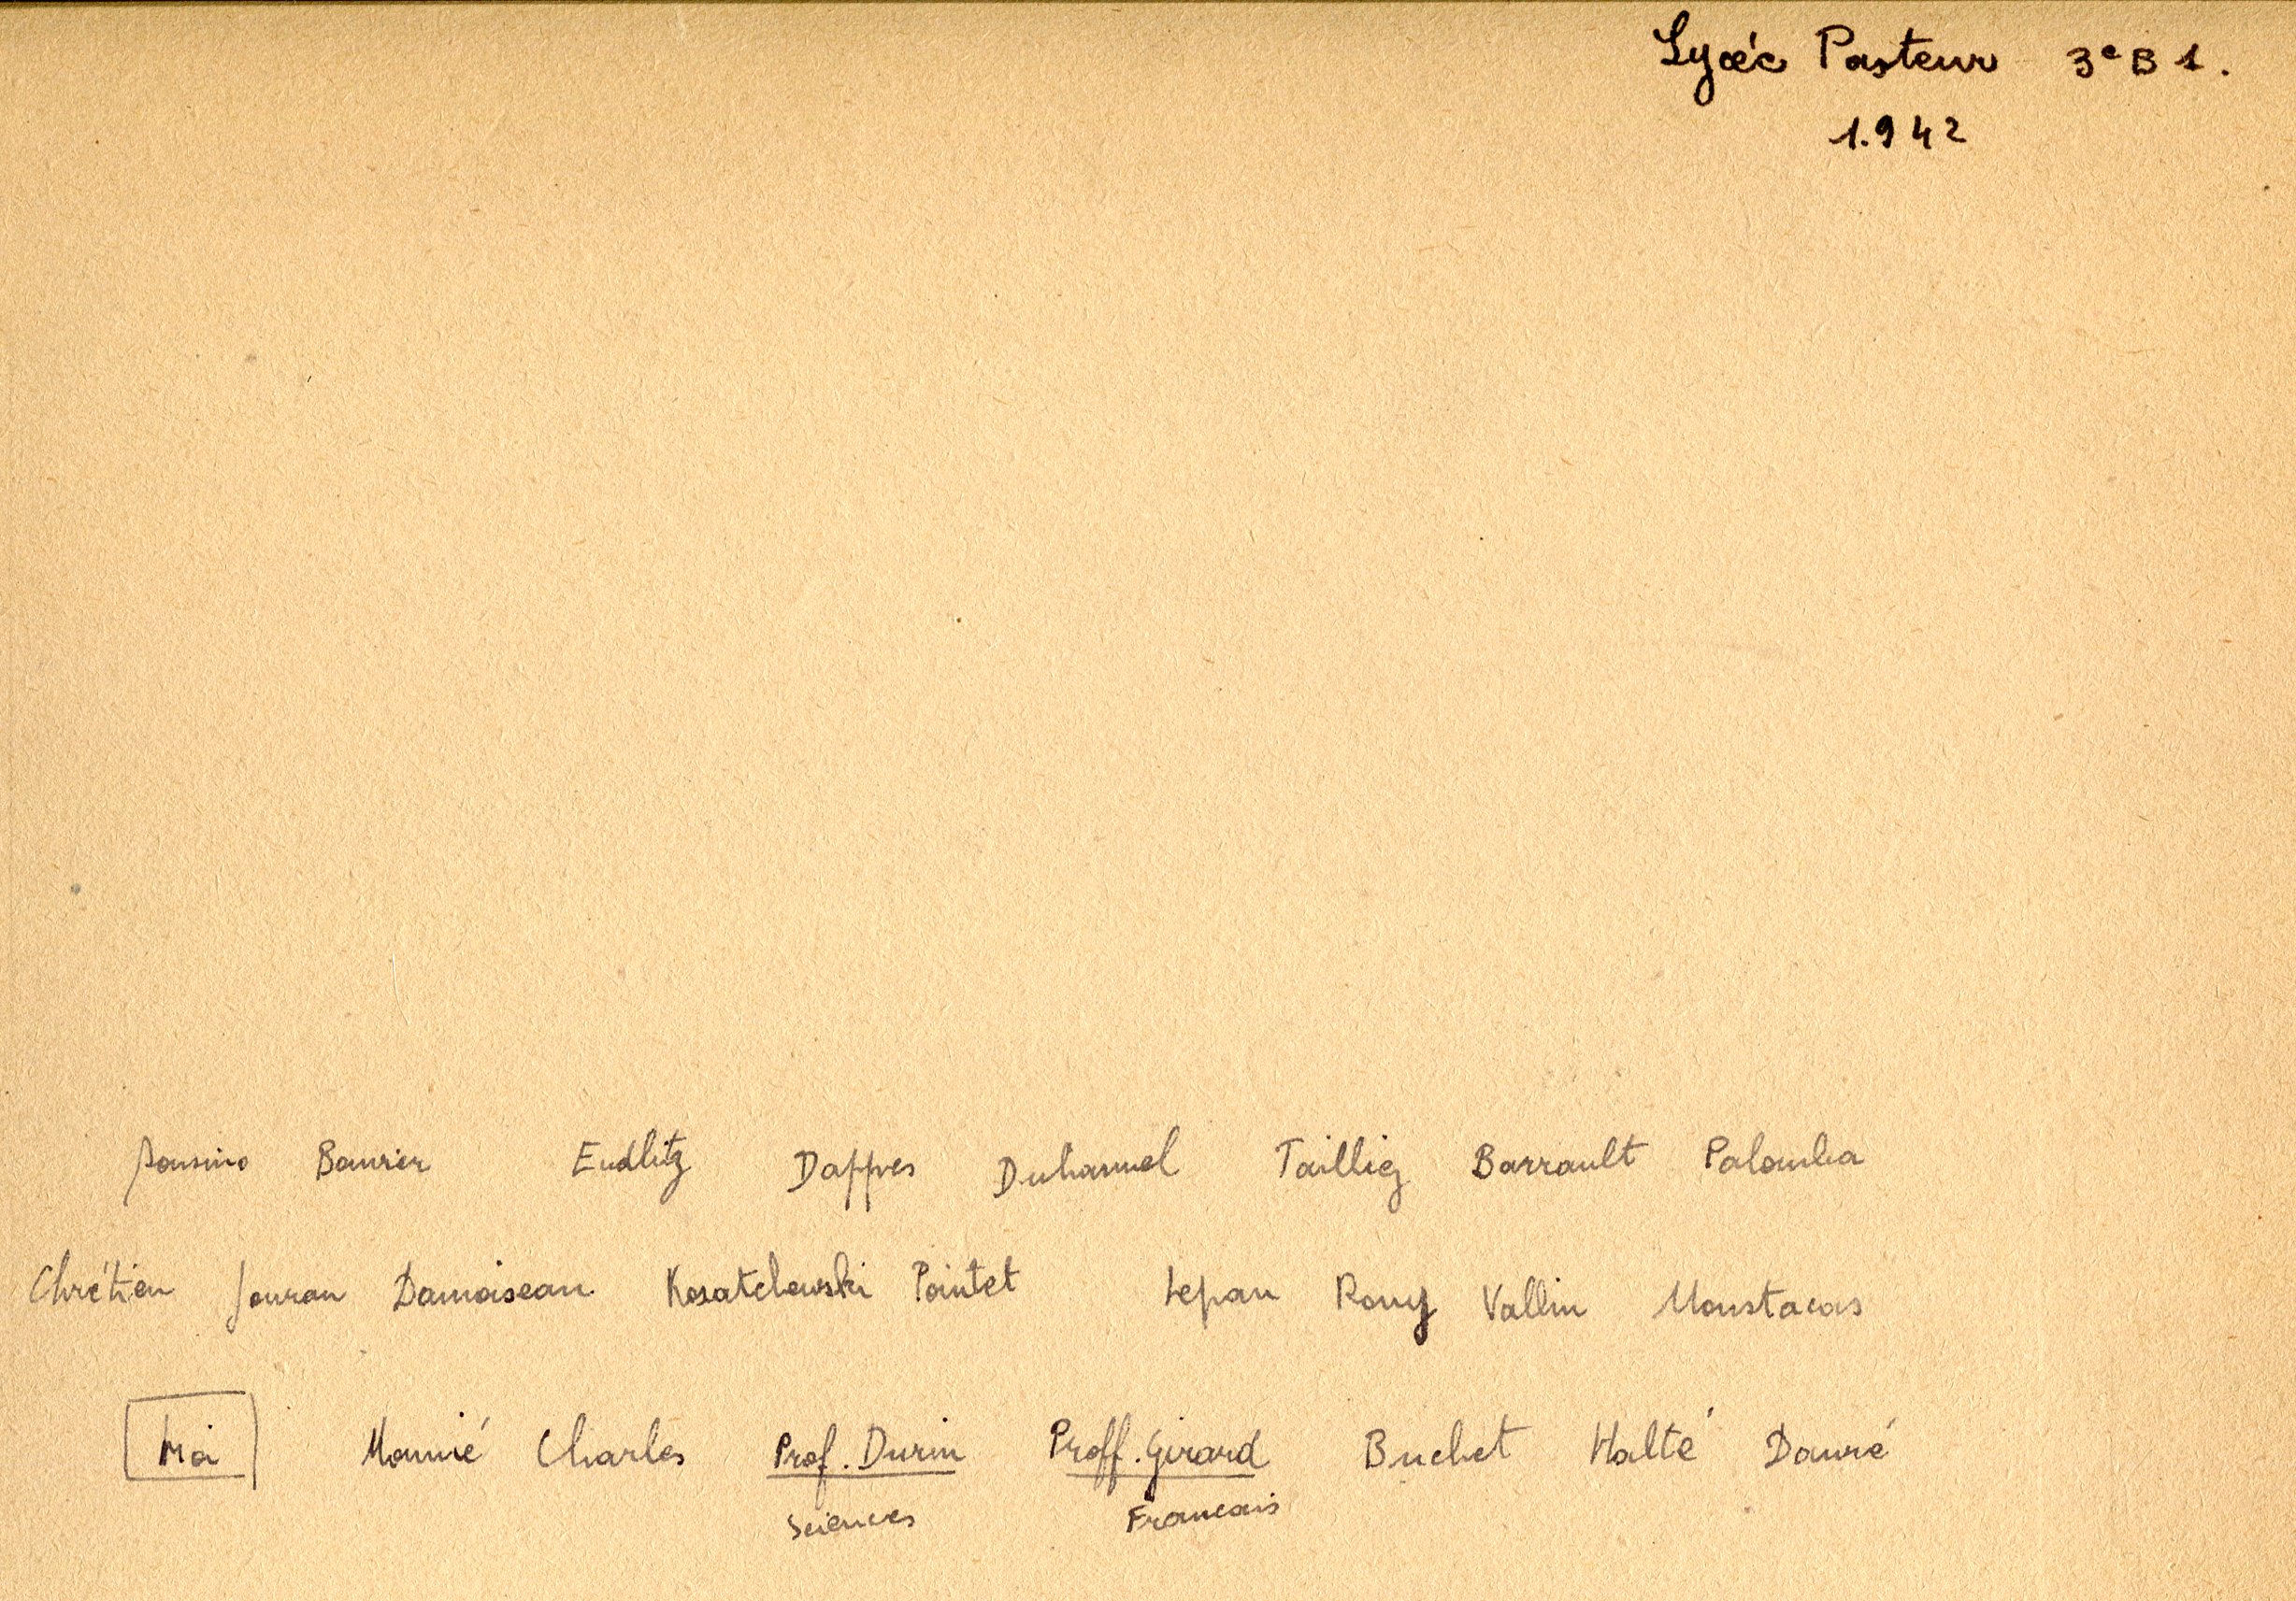 Lycée Pasteur 3e B 1.
1.942
Baurier Endlitz Dappes Duhamel Barrault Palomba
Chrétien Jouran Damoiseau Kosatchewski Pointet Lepan Rouy Vallin Moustacas
Moi Monnié Charles Prof. Durin Proff. Girard Buchet Halté Dauré
Sciences Francais